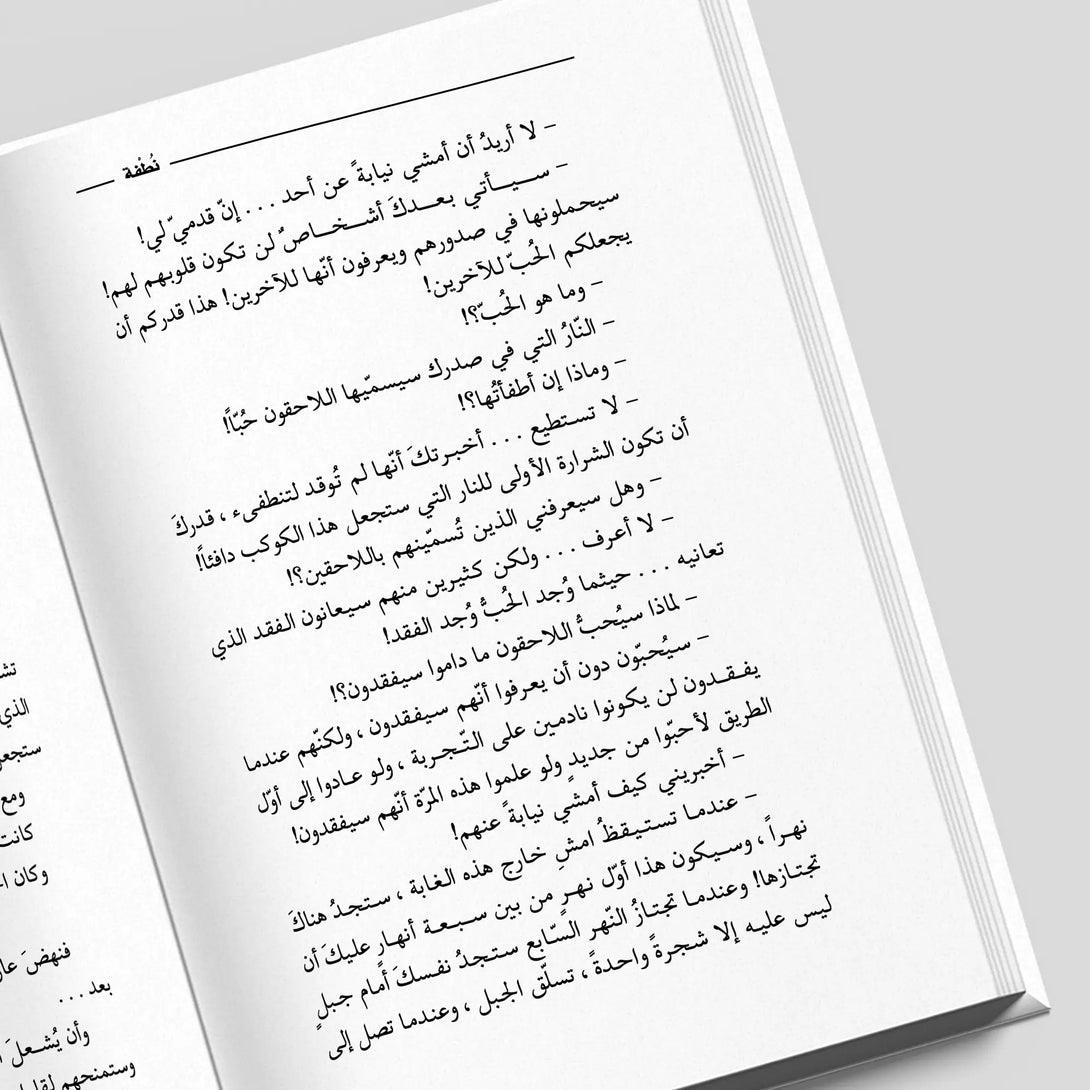 نُطْفة
– لا أريدُ أن أمشي نيابةً عن أحد . . . إنّ قدميّ لي!
– سيـأتي بعـدكَ أشـخـاصٌ لن تكون قلوبهم لهم!
سيحملونها في صدورهم ويعرفون أنّها للآخرين! هذا قدركم أن
يجعلكم الحُبّ للآخرين!
– وما هو الحُبّ؟!
– النّارُ التي في صدرك سيسميّها اللاحقون حُبّاً!
– وماذا إن أطفأتُها؟!
– لا تستطيع . . . أخبرتكَ أنّها لم تُوقد لتنطفىء ، قدركَ
أن تكون الشرارة الأولى للنار التي ستجعل هذا الكوكب دافئاً!
– وهل سيعرفني الذين تُسمّينهم باللاحقين؟!
– لا أعرف . . . ولكن كثيرين منهم سيعانون الفقد الذي
تعانيه . . . حيثما وُجد الحُبُّ وُجد الفقد!
– لماذا سيُحبُّ اللاحقون ما داموا سيفقدون؟!
– سيُحبّون دون أن يعرفوا أنّهم سيفقدون ، ولكنّهم عندما
يفقدون لن يكونوا نادمين على التّجربة ، ولو عادوا إلى أوّل
الطريق لأحبّوا من جديدٍ ولو علموا هذه المرّة أنّهم سيفقدون!
– أخبريني كيف أمشي نيابةً عنهم!
– عندما تستيقظُ امشِ خارج هذه الغابة ، ستجدُ هناكَ
نهراً ، وسيكون هذا أوّل نهرٍ من بين سبعة أنهارٍ عليكَ أن
تجتازها! وعندما تجتازُ النّهر السّابع ستجدُ نفسكَ أمام جبلٍ
ليس عليه إلا شجرةً واحدةً ، تسلّق الجبل ، وعندما تصل إلى
الذي
ومع
كانت
وكان
فنهضَ
بعد . . .
وأن يُشعلَ
وستمنحهم